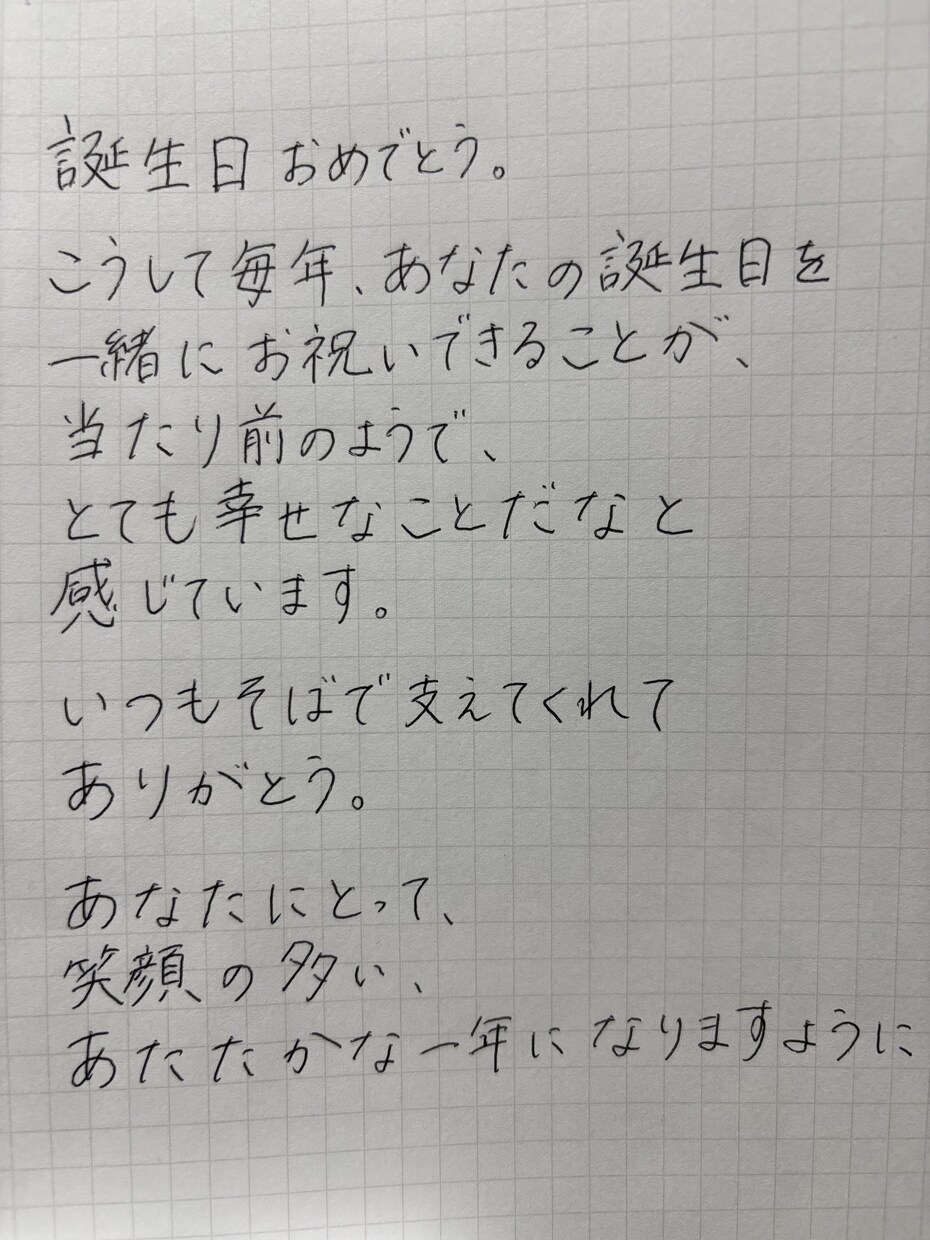 誕生日おめでとう。
こうして毎年、あなたの誕生日を
一緒にお祝いできることが、
当たり前のようで、
とても幸せなことだなと
感じています。
いつもそばで支えてくれて
ありがとう。
あなたにとって、
笑顔の多い、
あたたかな一年になりますように